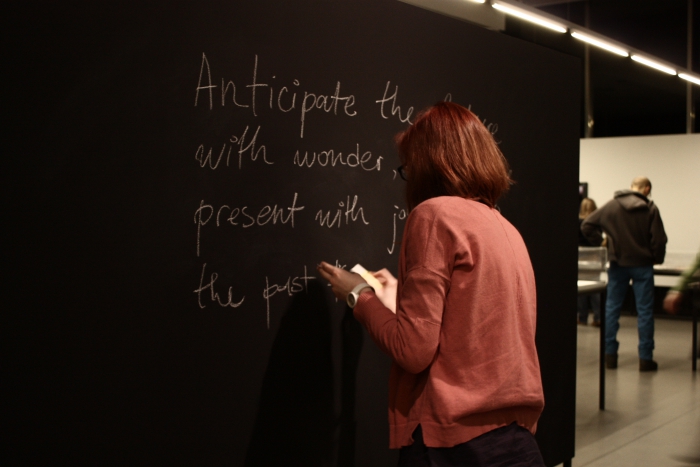 Anticipate the
with wonder,
present with
the past